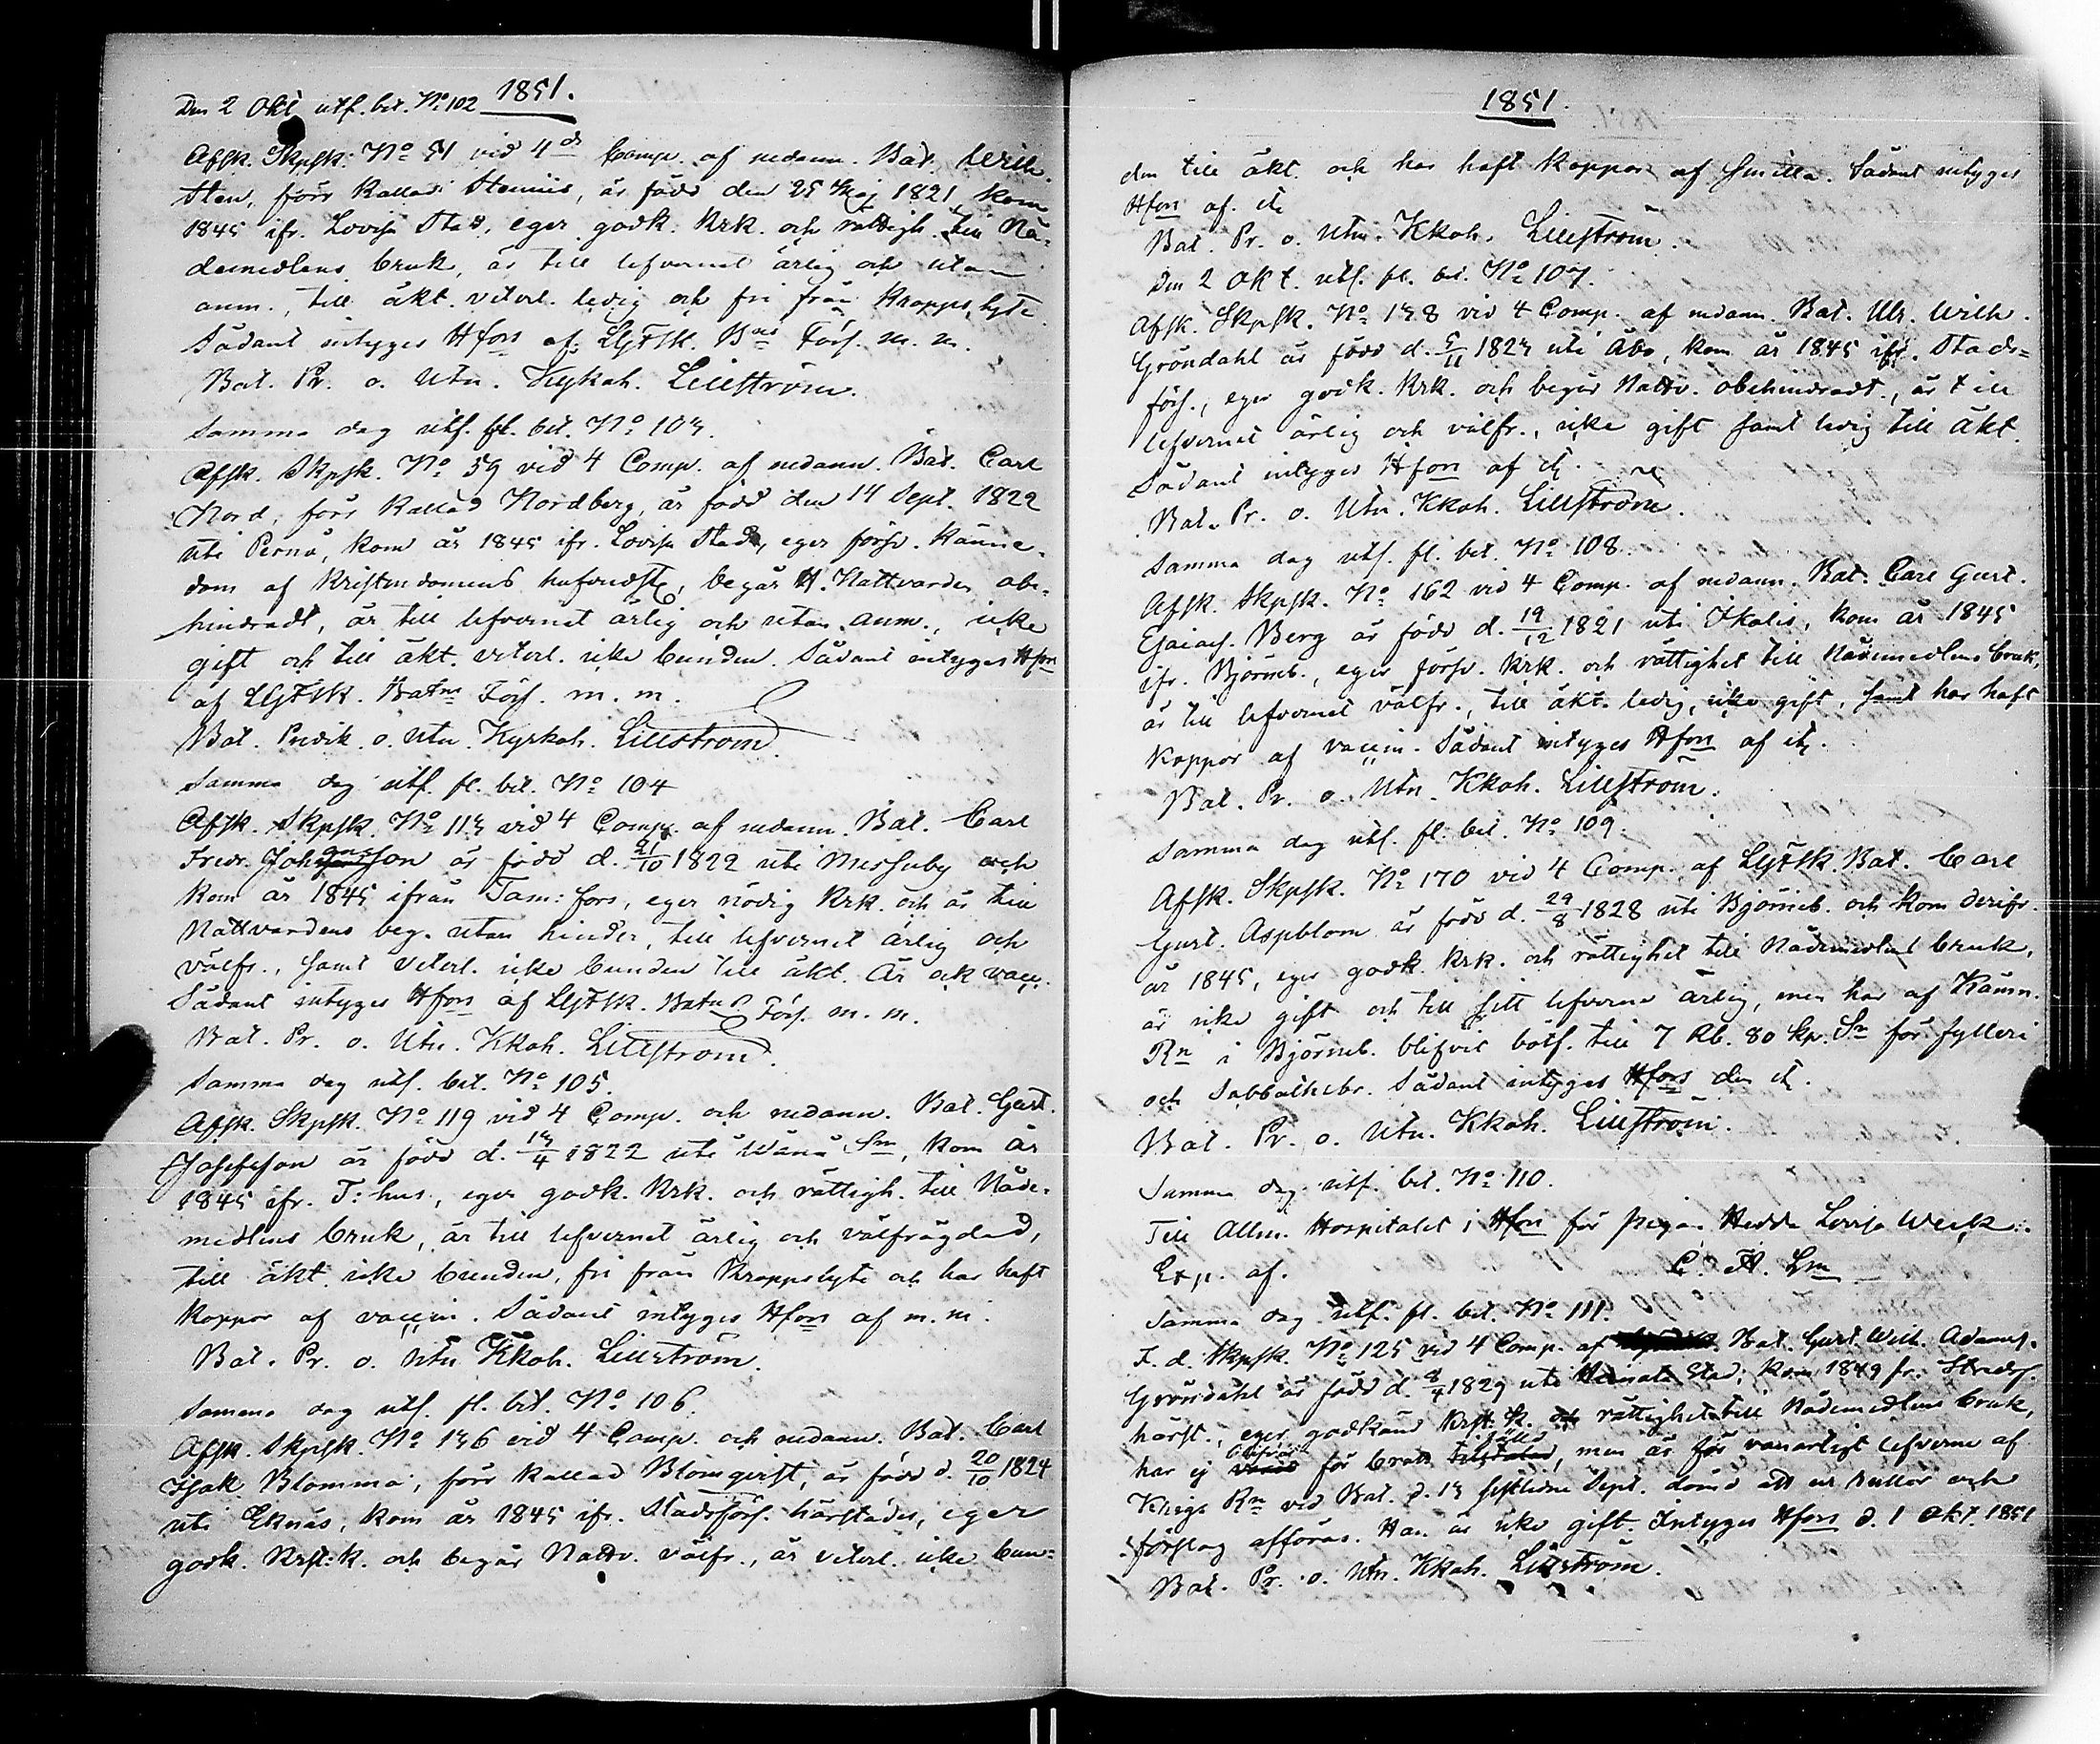 1851.
Den 2 Okt utf. bet. No 102
Afsk. Skpsk. No 51 vid 4de Comp. af nedann. Bat. Wilh.
Sten, förr kallad Stenius, är född den 25 Maj 1821, kom
1845 ifr. Lovisa Stad, eger godk. Krk. och rättigh. till Nå-
demedlens bruk, är till lefvernet ärlig och utan
anm., till äkt. veterl. ledig och fri från kroppslyte.
Sådant intyges Hfors af LGFSk. Bns Förs. m. m.
Bat. Pr. o. Utn. Kykoh. Lillström.
Samma dag utf. fl. bet. No 103.
Afsk. Skpsk. No 59 vid 4 Comp. af nedann. Bat. Carl
Nord, förr kallad Nordberg, är född den 14 Sept. 1822
uti Pernå, kom år 1845 ifr. Lovisa Stad, eger försv. känne-
dom af Kristendomens hufvudst, begår H. Nattvarden obe-
hindradt, är till lefvernet ärlig och utan anm., icke
gift och till äkt. veterl. icke bunden. Sådant intyges Hfors
af LGFSk. Batns Förs. m. m.
Bat. Predik. o. Utn. Kyrkoh. Lillström
Samma dag utf. fl. bet. No 104
Afsk. Skpsk. No 113 vid 4 Comp. af nedann. Bat. Carl
Fredr. Johansson är född d. 21/10 1822 uti Messuby och
kom år 1845 ifrån Tam:fors, eger nödig Krk. och är till
Nattvardens beg. utan hinder, till lefvernet ärlig och
välfr., samt veterl. icke bunden till äkt. Är ock vacc.
Sådant intyges Hfors af LGFSk. Batns Förs. m. m.
Bat. Pr. o. Utn. Kkoh. Lillström.
Samma dag utf. bet. No 105.
Afsk. Skpsk. No 119 vid 4 Comp. och nedann. Bat. Gust.
Josefsson är född d. 13/4 1822 uti Wånå Sn, kom år
1845 ifr. T:hus, eger godk. Krk. och rättigh. till Nåde-
medlens bruk, är till lefvernet ärlig och välfrägdad,
till äkt. icke bunden, fri från kroppslyte och har haft
koppor af vaccin. Sådant intyges Hfors af m. m.
Bat. Pr. o. Utn Kkoh. Lillström.
Samma dag utf. fl. bet. No 106
Afsk. Skpsk. No 136 vid 4 Comp. och nedann. Bat. Carl
Isak Blomma, förr kallad Blomqvist, är född d. 20/10 1824
uti Eknäs, kom år 1845 ifr. Stadsförs. härstädes, eger
godk. Krst:k. och begår Nattv. välfr., är veterl. icke bun-
1851.
den till äkt. och har haft koppor af smitta. Sådant intyges
Hfors af. etc
Bat. Pr. o. Utn. Kkoh. Lillström.
Den 2 Okt. utf. fl. bet. No 107.
Afsk. Skpsk. No 138 vid 4 Comp. af nedann. Bat. Ulr. Wilh.
Gröndahl är född d. 5/11 1823 uti Åbo, kom år 1845 ifr. Stads-
förs., eger godk. Krk. och begår Nattv. obehindradt, är till
lefvernet ärlig och välfr., icke gift samt ledig till äkt.
Sådant intyges Hfors af etc.
Bat. Pr. o. Utn. Kkoh. Lillström.
Samma dag utf. fl. bet. No 108.
Afsk. Skpsk. No 162 vid 4 Comp. af nedann. Bat. Carl Gust.
Esaias. Berg är född d. 19/12 1821 uti Ikalis, kom år 1845
ifr. Björneb., eger försv. Krk. och rättighet till Nådemedlens bruk,
är till lefvernet välfr., till äkt. ledig, icke gift, samt har haft
koppor af vaccin. Sådant intyges Hfors af etc.
Bat. Pr. o. Utn. Kkoh. Lillström.
Samma dag utf. fl. bet. No 109.
Afsk. Skpsk. No 170 vid 4 Comp. af LGFSk. Bat. Carl
Gust. Aspblom är född d. 29/8 1828 uti Björneb. och kom derifr.
år 1845, eger godk. Krk. och rättighet till Nådemedlens bruk,
är icke gift och till sitt lefverne ärlig, men har af Kämn.
Rn i Björneb. blifvit bötf. till 7 Rb. 80 kp. Sr för fylleri
och Sabbathsbr. Sådant intyges Hfors den etc.
Bat. Pr. o. Utn. Kkoh. Lillström.
Samma dag utf. bet. No 110.
Till Allm. Hospitalet i Hfors för pigan Hedda Lovisa Weck.
Exp. af. C. A. Lm
Samma dag utf. fl. bet. No 111.
F. d. Skpsk. No 125 vid 4 Comp. af Bat. Gust. Wilh. Adams.
Gröndahl är född d. 8/4 1829 uti Stad, kom 1849 fr. Stadsf.
härst., eger godkänd Krst. K. och rättighet till Nådemedlens bruk,
har ej varit blifvit för brott tilltalad fälld, men är för vanartigt lefverne af
Krigs Rn vid Bat. d. 13 sistlidne Sept. dömd att ur rullor och
förslag afföras. Han är icke gift. Intyges Hfors d. 1 Okt. 1851
Bat. Pr. o. Utn. Kkoh. Lillström.